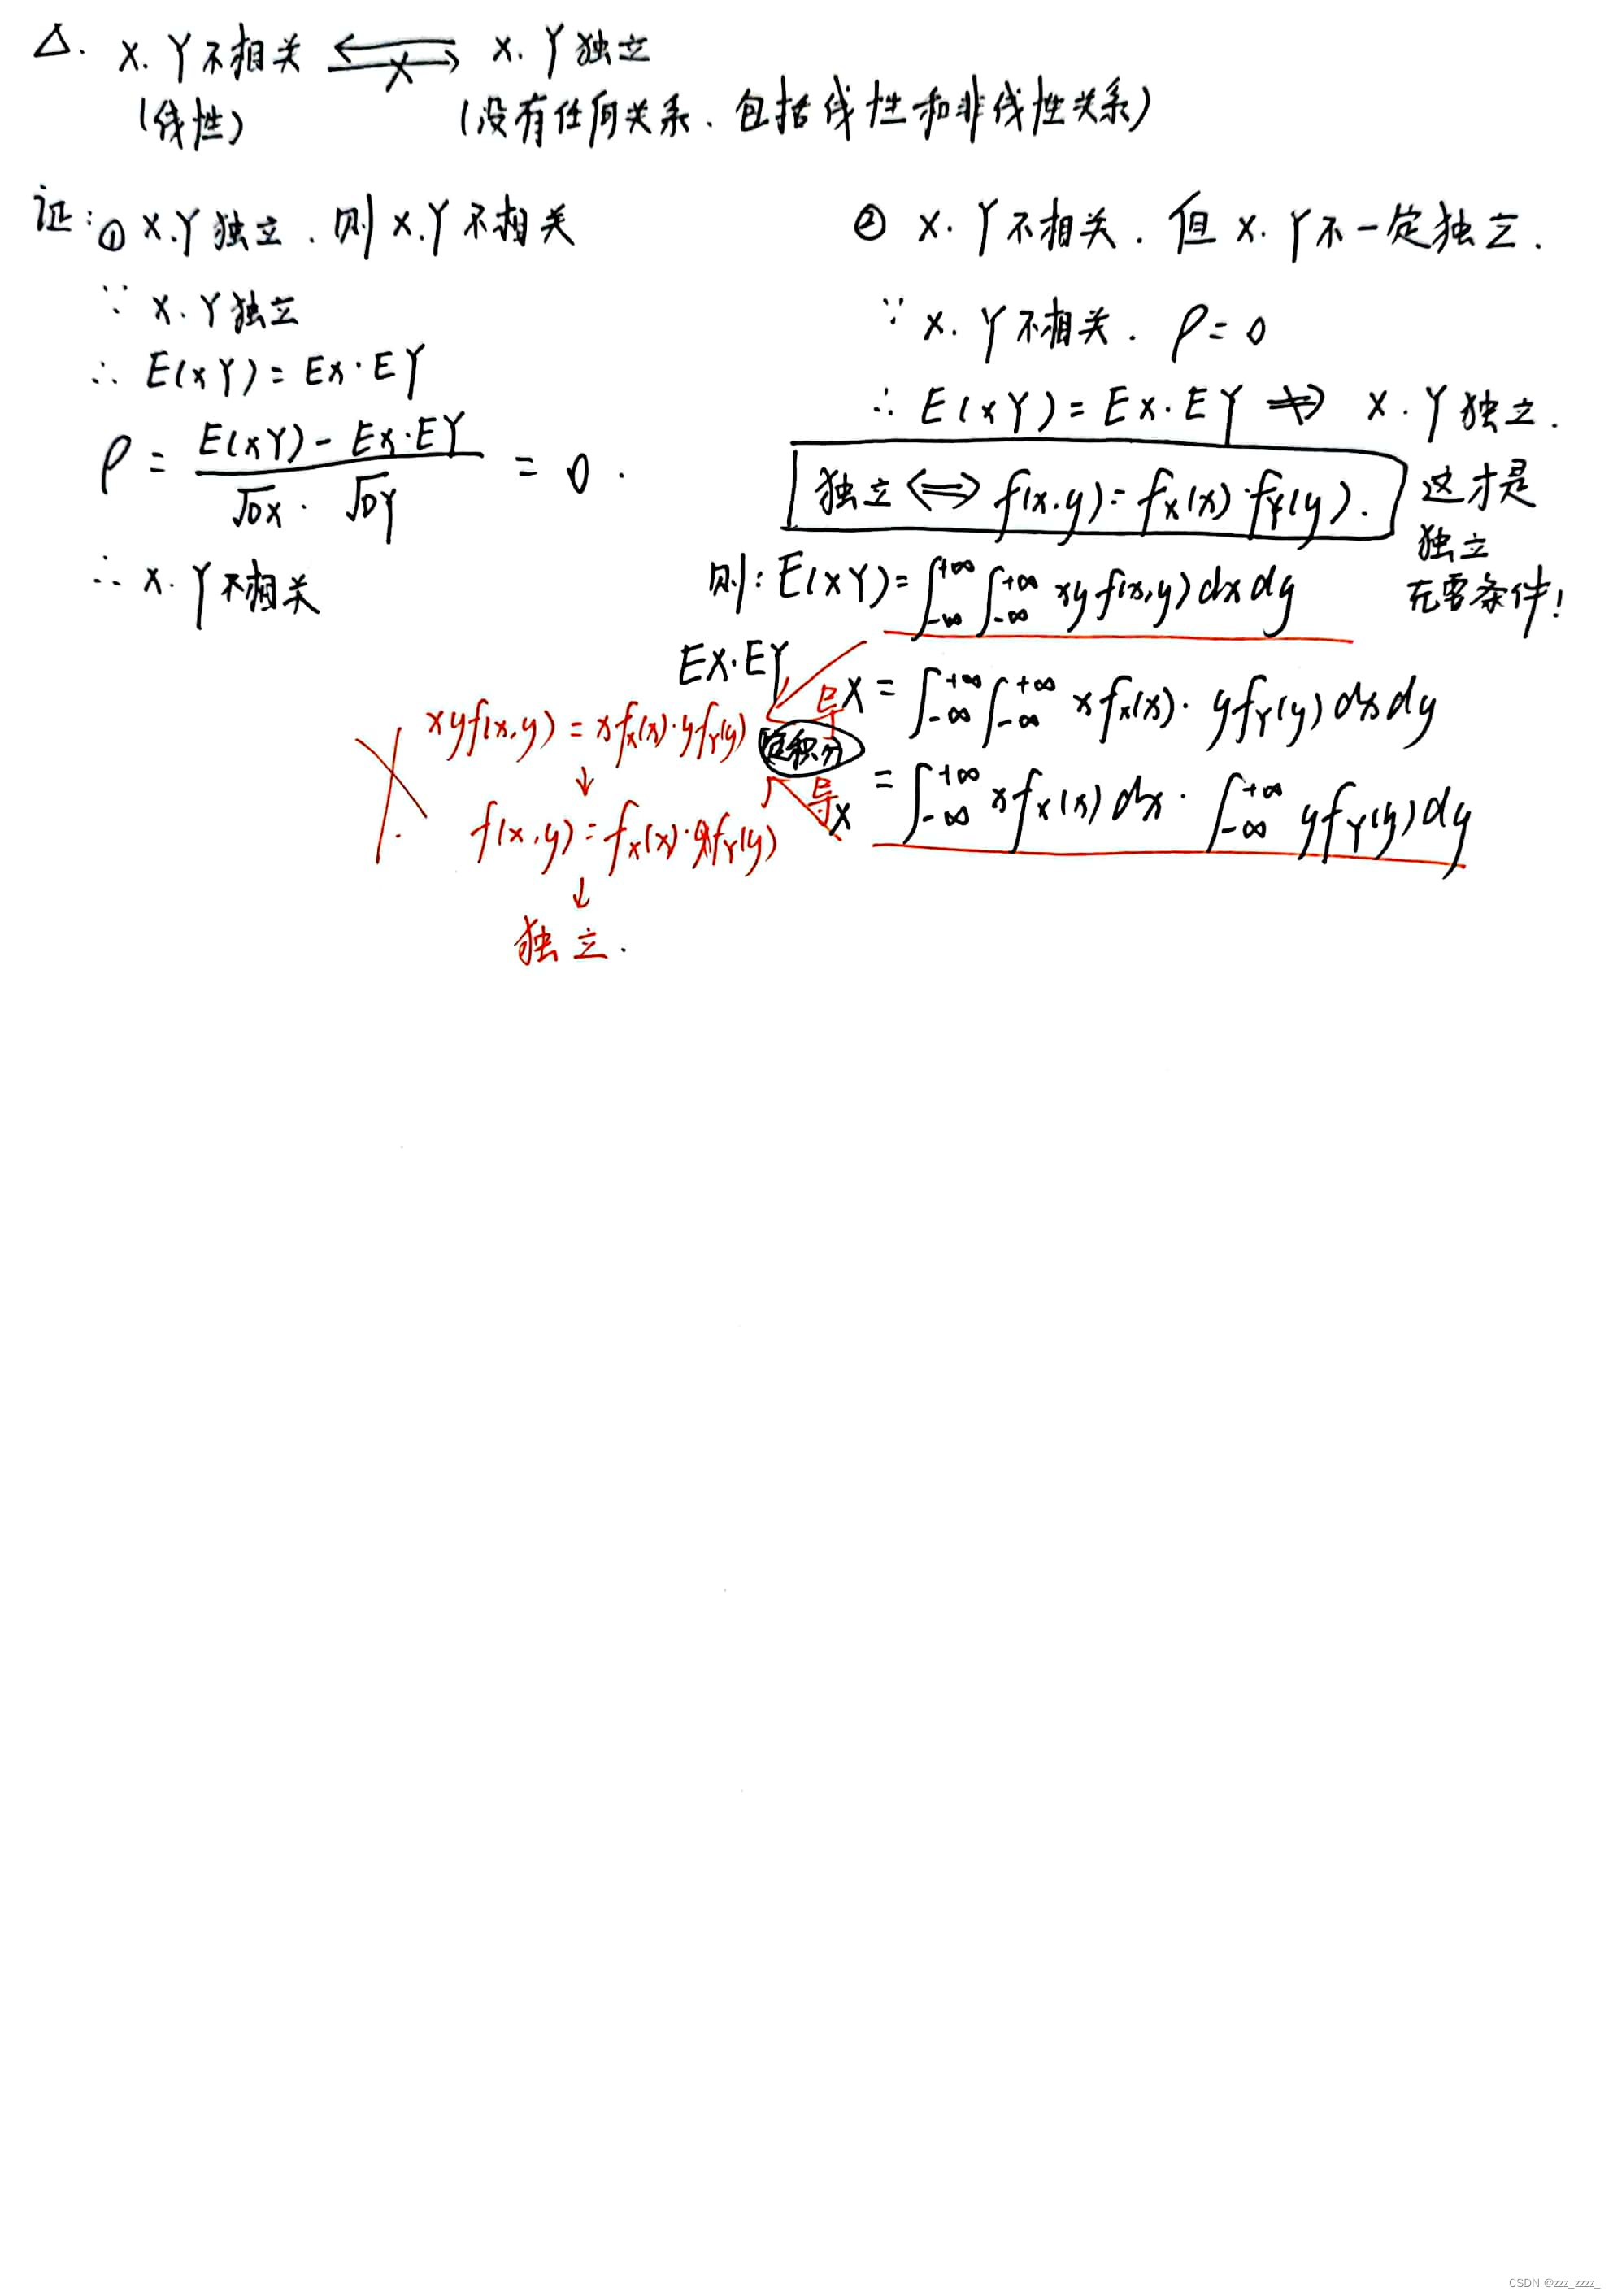 △. X. Y不相关 ⇐ ⇏ X. Y独立
(线性) (没有任何关系、包括线性和非线性关系)
证:① X.Y独立、则X.Y不相关
∵ X.Y独立
∴ E(XY)=EX·EY
ρ = (E(XY)-EX·EY)/(√DX·√DY) = 0.
∴ X.Y不相关
② X.Y不相关.但X.Y不一定独立.
∵ X.Y不相关. ρ=0
∴ E(XY)=EX·EY ⇏ X.Y独立.
独立 ⟺ f(x,y)=f_X(x)·f_Y(y).
这才是
独立
充要条件!
则:E(XY)=∫_{-∞}^{+∞}∫_{-∞}^{+∞} xyf(x,y)dxdy
EX·EY = ∫_{-∞}^{+∞}∫_{-∞}^{+∞} xf_X(x)·yf_Y(y)dxdy
= ∫_{-∞}^{+∞} xf_X(x)dx·∫_{-∞}^{+∞} yf_Y(y)dy
导 X
定积分
导 X
xyf(x,y)=xf_X(x)·yf_Y(y)
↓
f(x,y)=f_X(x)·f_Y(y)
↓
独立.
CSDN @zzz_zzzz_